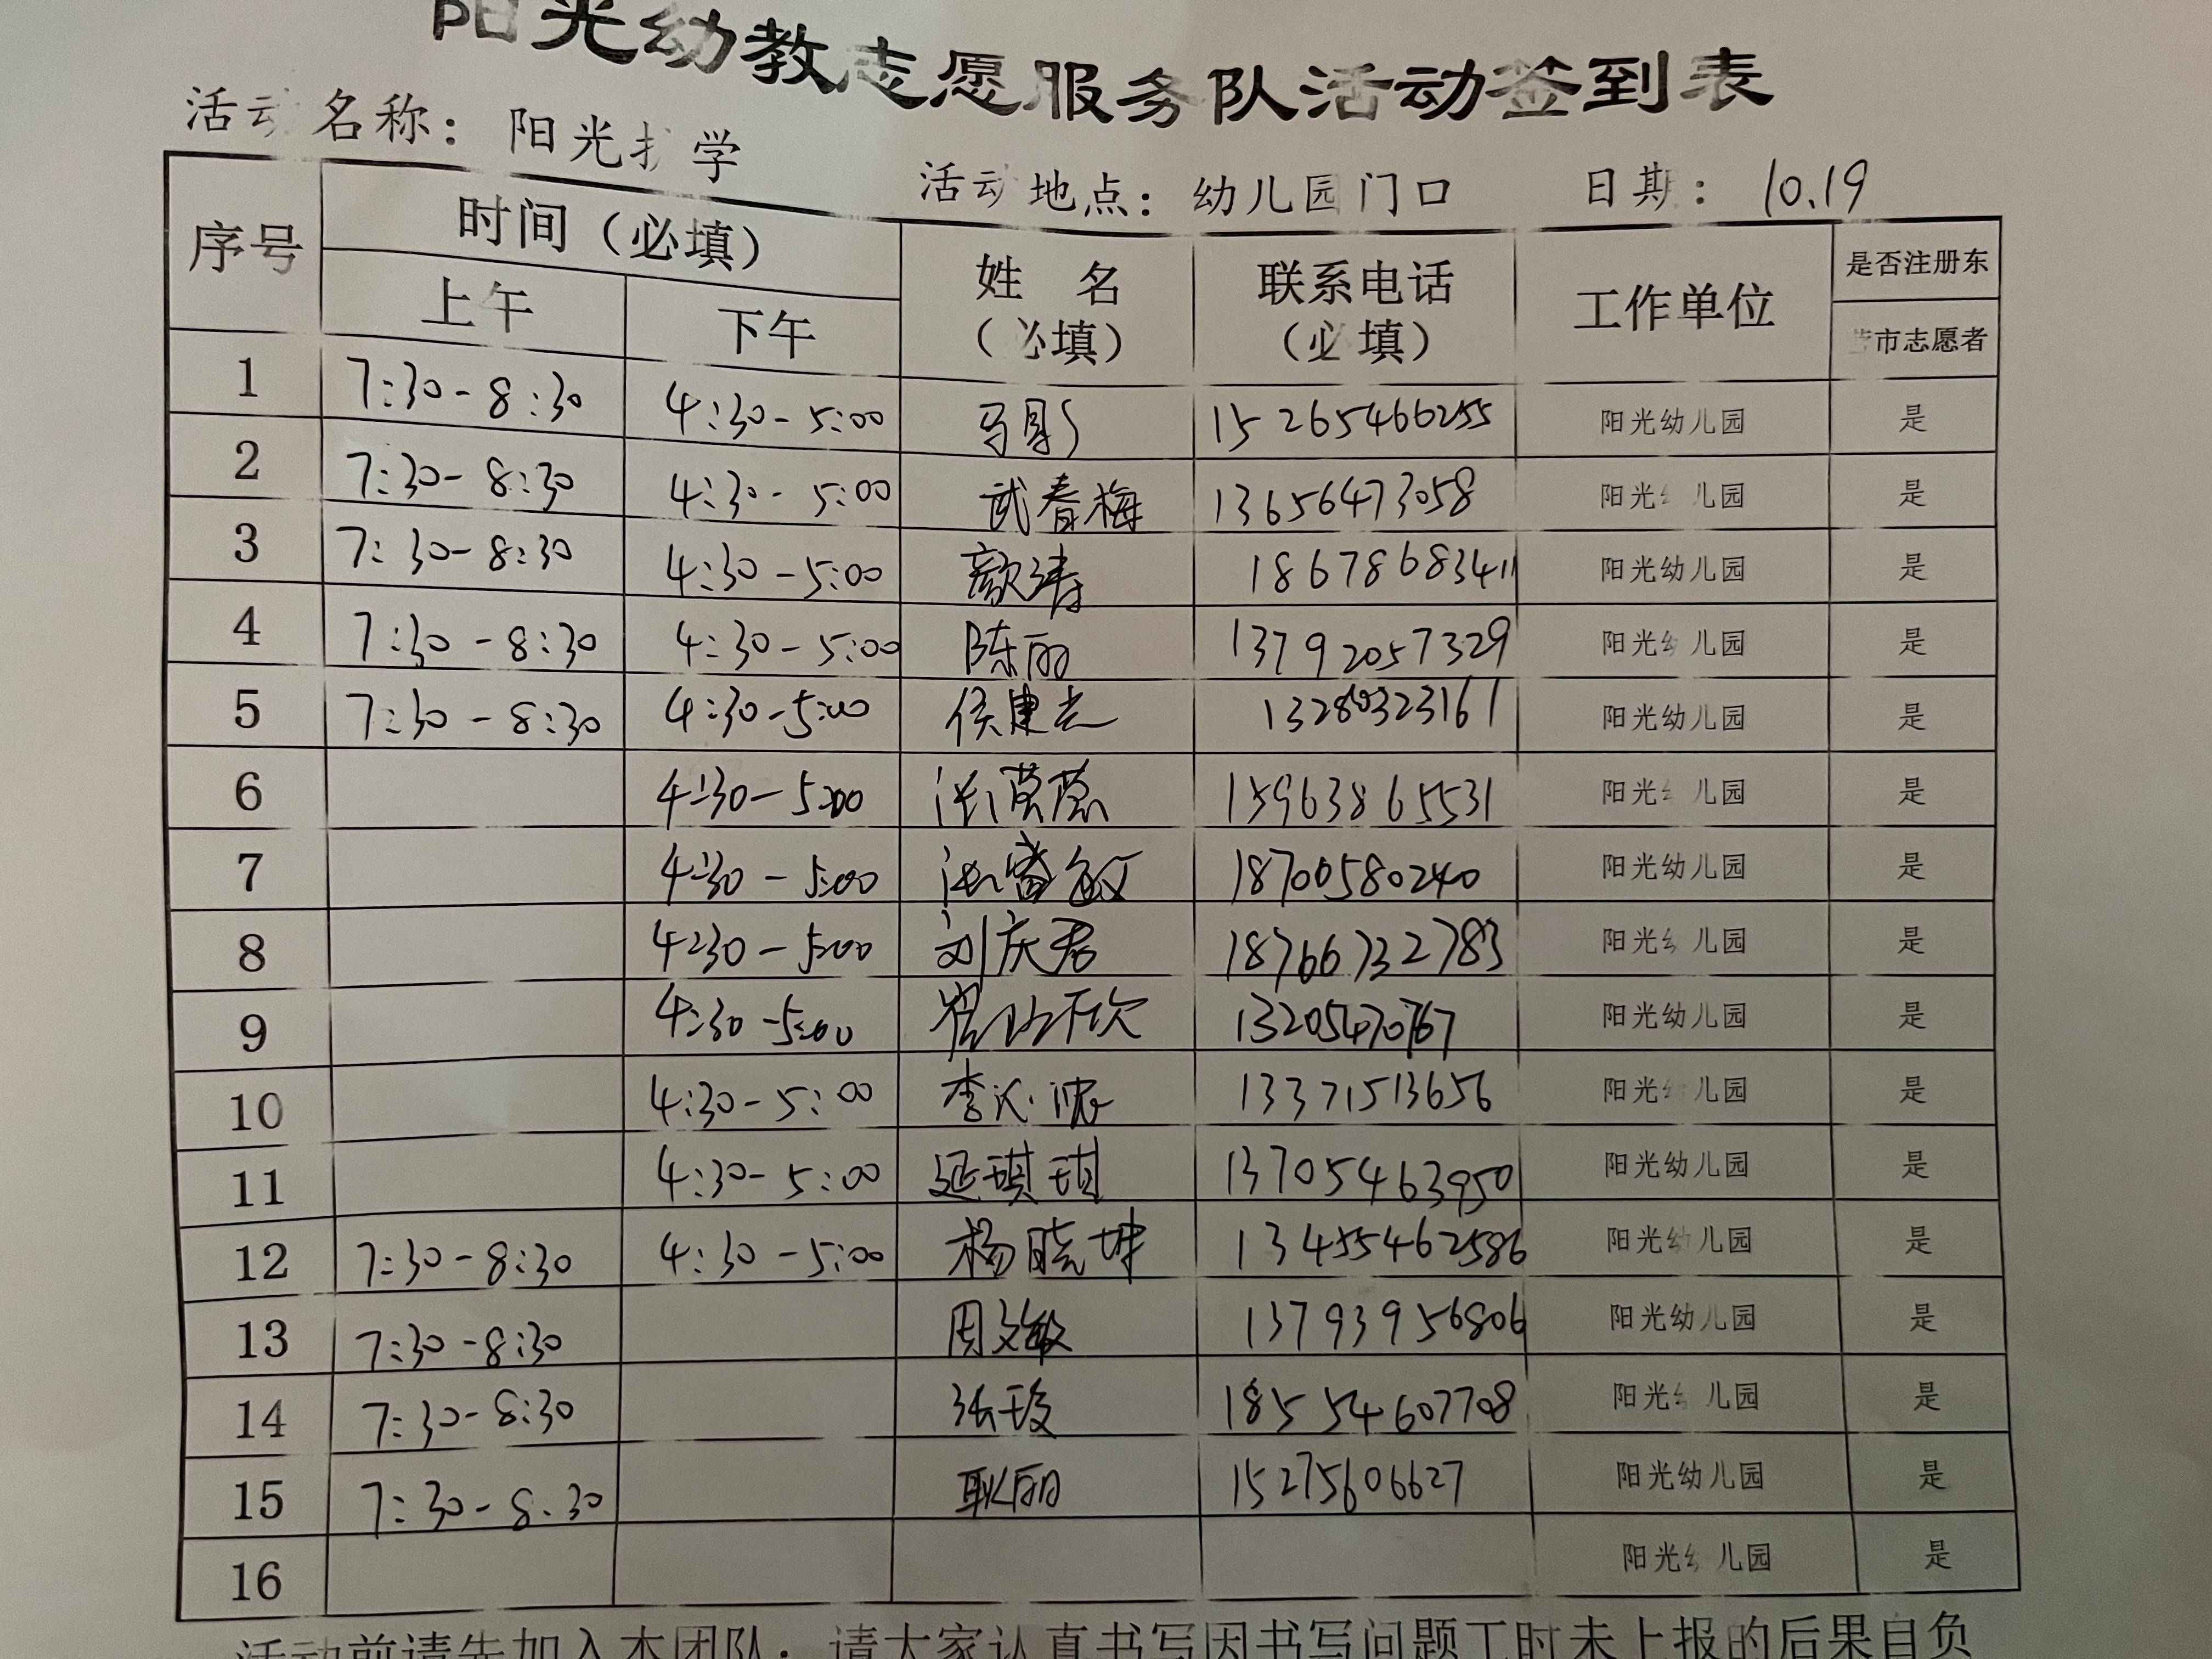 阳光幼教志愿服务队活动签到表
活动名称：阳光护学 活动地点：幼儿园门口 日期：10.19
序号 时间（必填） 姓名（必填） 联系电话（必填） 工作单位 是否注册东营市志愿者
上午 下午
1 7:30-8:30 4:30-5:00 马彰 15265466255 阳光幼儿园 是
2 7:30-8:30 4:30-5:00 武春梅 13656473058 阳光幼儿园 是
3 7:30-8:30 4:30-5:00 颜涛 18678683411 阳光幼儿园 是
4 7:30-8:30 4:30-5:00 陈丽 13792057329 阳光幼儿园 是
5 7:30-8:30 4:30-5:00 侯建志 13280323161 阳光幼儿园 是
6 4:30-5:00 15963865531 阳光幼儿园 是
7 4:30-5:00 18700580240 阳光幼儿园 是
8 4:30-5:00 刘庆君 18766732783 阳光幼儿园 是
9 4:30-5:00 13205470767 阳光幼儿园 是
10 4:30-5:00 13371513656 阳光幼儿园 是
11 4:30-5:00 延琪琪 13705463950 阳光幼儿园 是
12 7:30-8:30 4:30-5:00 杨晓坤 13455462586 阳光幼儿园 是
13 7:30-8:30 周文敏 13793956806 阳光幼儿园 是
14 7:30-8:30 张珍 18554607708 阳光幼儿园 是
15 7:30-8:30 耿丽 15275606627 阳光幼儿园 是
16 阳光幼儿园 是
活动前请先加入本团队；请大家认真书写因书写问题工时未上报的后果自负